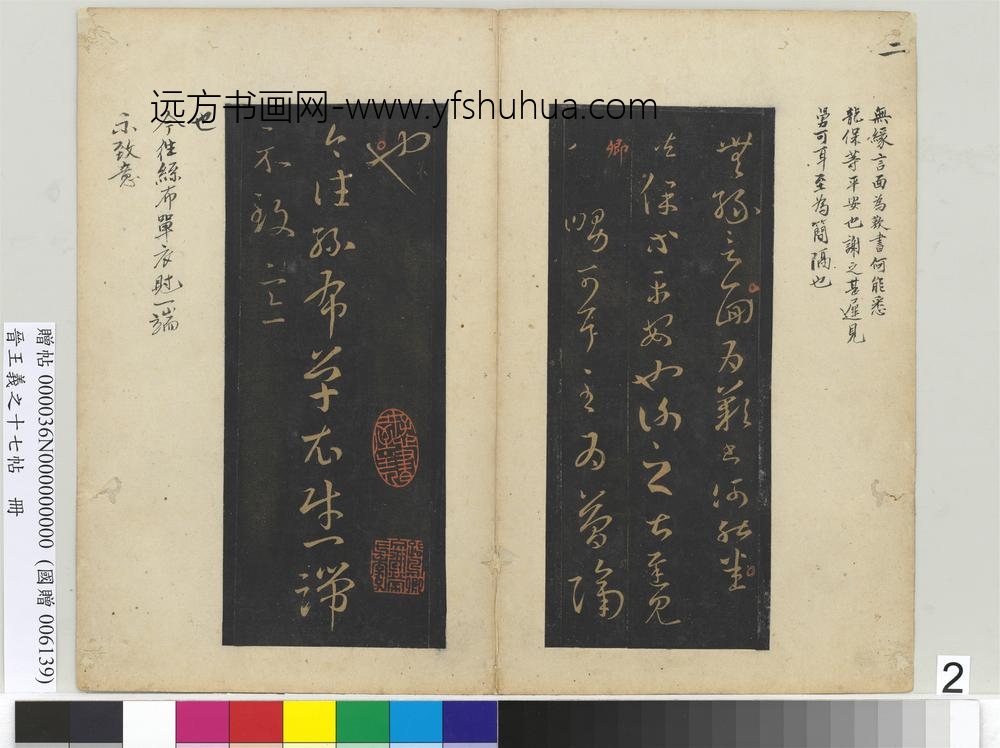 二
無緣言面為歎書何能悉
龍保等平安也謝之甚遲見
舅可耳至為簡隔也
無緣言面為歎書何能悉
龍保等平安也謝之甚遲見
卿
舅可耳至為簡隔
也
今往絲布單衣財一端
示致意
也
今往絲布單衣財一端
示致意
远方书画网-www.yfshuhua.com
贈帖 000036N000000000 (國贈 006139)
晉王羲之十七帖 冊
2